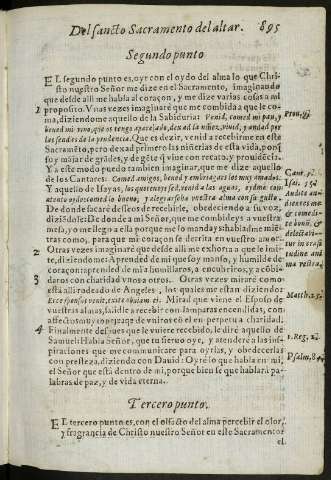 Del sancto Sacramento del altar. 895
Segundo punto
EL segundo punto es, oyr con el oydo del alma lo que Chri-
sto nuestro Señor me dize en el Sacramento, imaginando
que desde alli me habla al coraçon, y me dize varias cosas a mi
1 proposito. Vnas vezes imaginaré que me combida a que le co-
ma, diziendome aquello de la Sabiduria: Venid, comed mi pan, y
beued mi vino, que os tengo aparejado, dexad la niñez, viuid, y andad por
las sendas de la prudencia. Que es dezir, venid a recebirme en este
Sacramēto, pero dexad primero las niñerias de esta vida, porq̃
soy mājar de grādes, y de gēte q̃ viue con recato, y prouidēcia.
Y a este modo puedo tambien imaginar, que me dize aquello
de los Cantares: Comed amigos, beued y embriagaos los muy amados.
Y aquello de Isayas, los que teneys sed, venid a las aguas, oydme con
atento oydo: comed lo bueno, y alegrarseha vuestra alma con su grossura.
De donde sacaré desseos de recebirle, obedeciendo a su voz,
diziēdole: De donde a mi Señor, que me combideys a vuestra
mesa, yo me llego a ella porque me lo mandays: hablad me miē-
tras como, paraque mi coraçon se derrita en vuestro amor.
2 Otras vezes imaginaré que desde alli me exhorta a que le imi-
te, diziendome: Aprended de mi que soy manso, y humilde de
coraçon: aprended de mi a humillaros, a encubriros, y a cōbi-
3 daros con charidad vnos a otros. Otras vezes miraré como
està alli rodeado de Angeles, los quales me estan diziendo
Ecce sponsus venit, exite obuiam ei. Mirad que viene el Esposo de
vuestras almas, salidle a recebir con lamparas encendidas, con
affectuosa y con propositos de viuiros cō el en perpetua charidad.
4 Finalmente despues que le viuere recebido, le diré aquello de
Samuel: Habla Señor, que tu sieruo oye, y atenderé a las ins-
piraciones que me comunicare para oyrlas, y obedecerlas
con presteza, diziendo con Dauid: Oyré lo que habla en mi,
el Señor que està dentro de mi, porque bien se que hablarà pa-
labras de paz, y de vida eterna.
Tercero punto.
EL tercero punto es, con el olfacto del alma percebir el olor,
y fragrancia de Christo nuestro Señor en este Sacramento
el
Prou. 9.
Cant. 5.
Isai. 55.
Audite au-
dientes me
& comedi-
te bonũ, &
delectabi-
tur in crassi
tudine ani
ma vestra.
Matth. 25.
1. Reg. 3.
Psalm. 84.